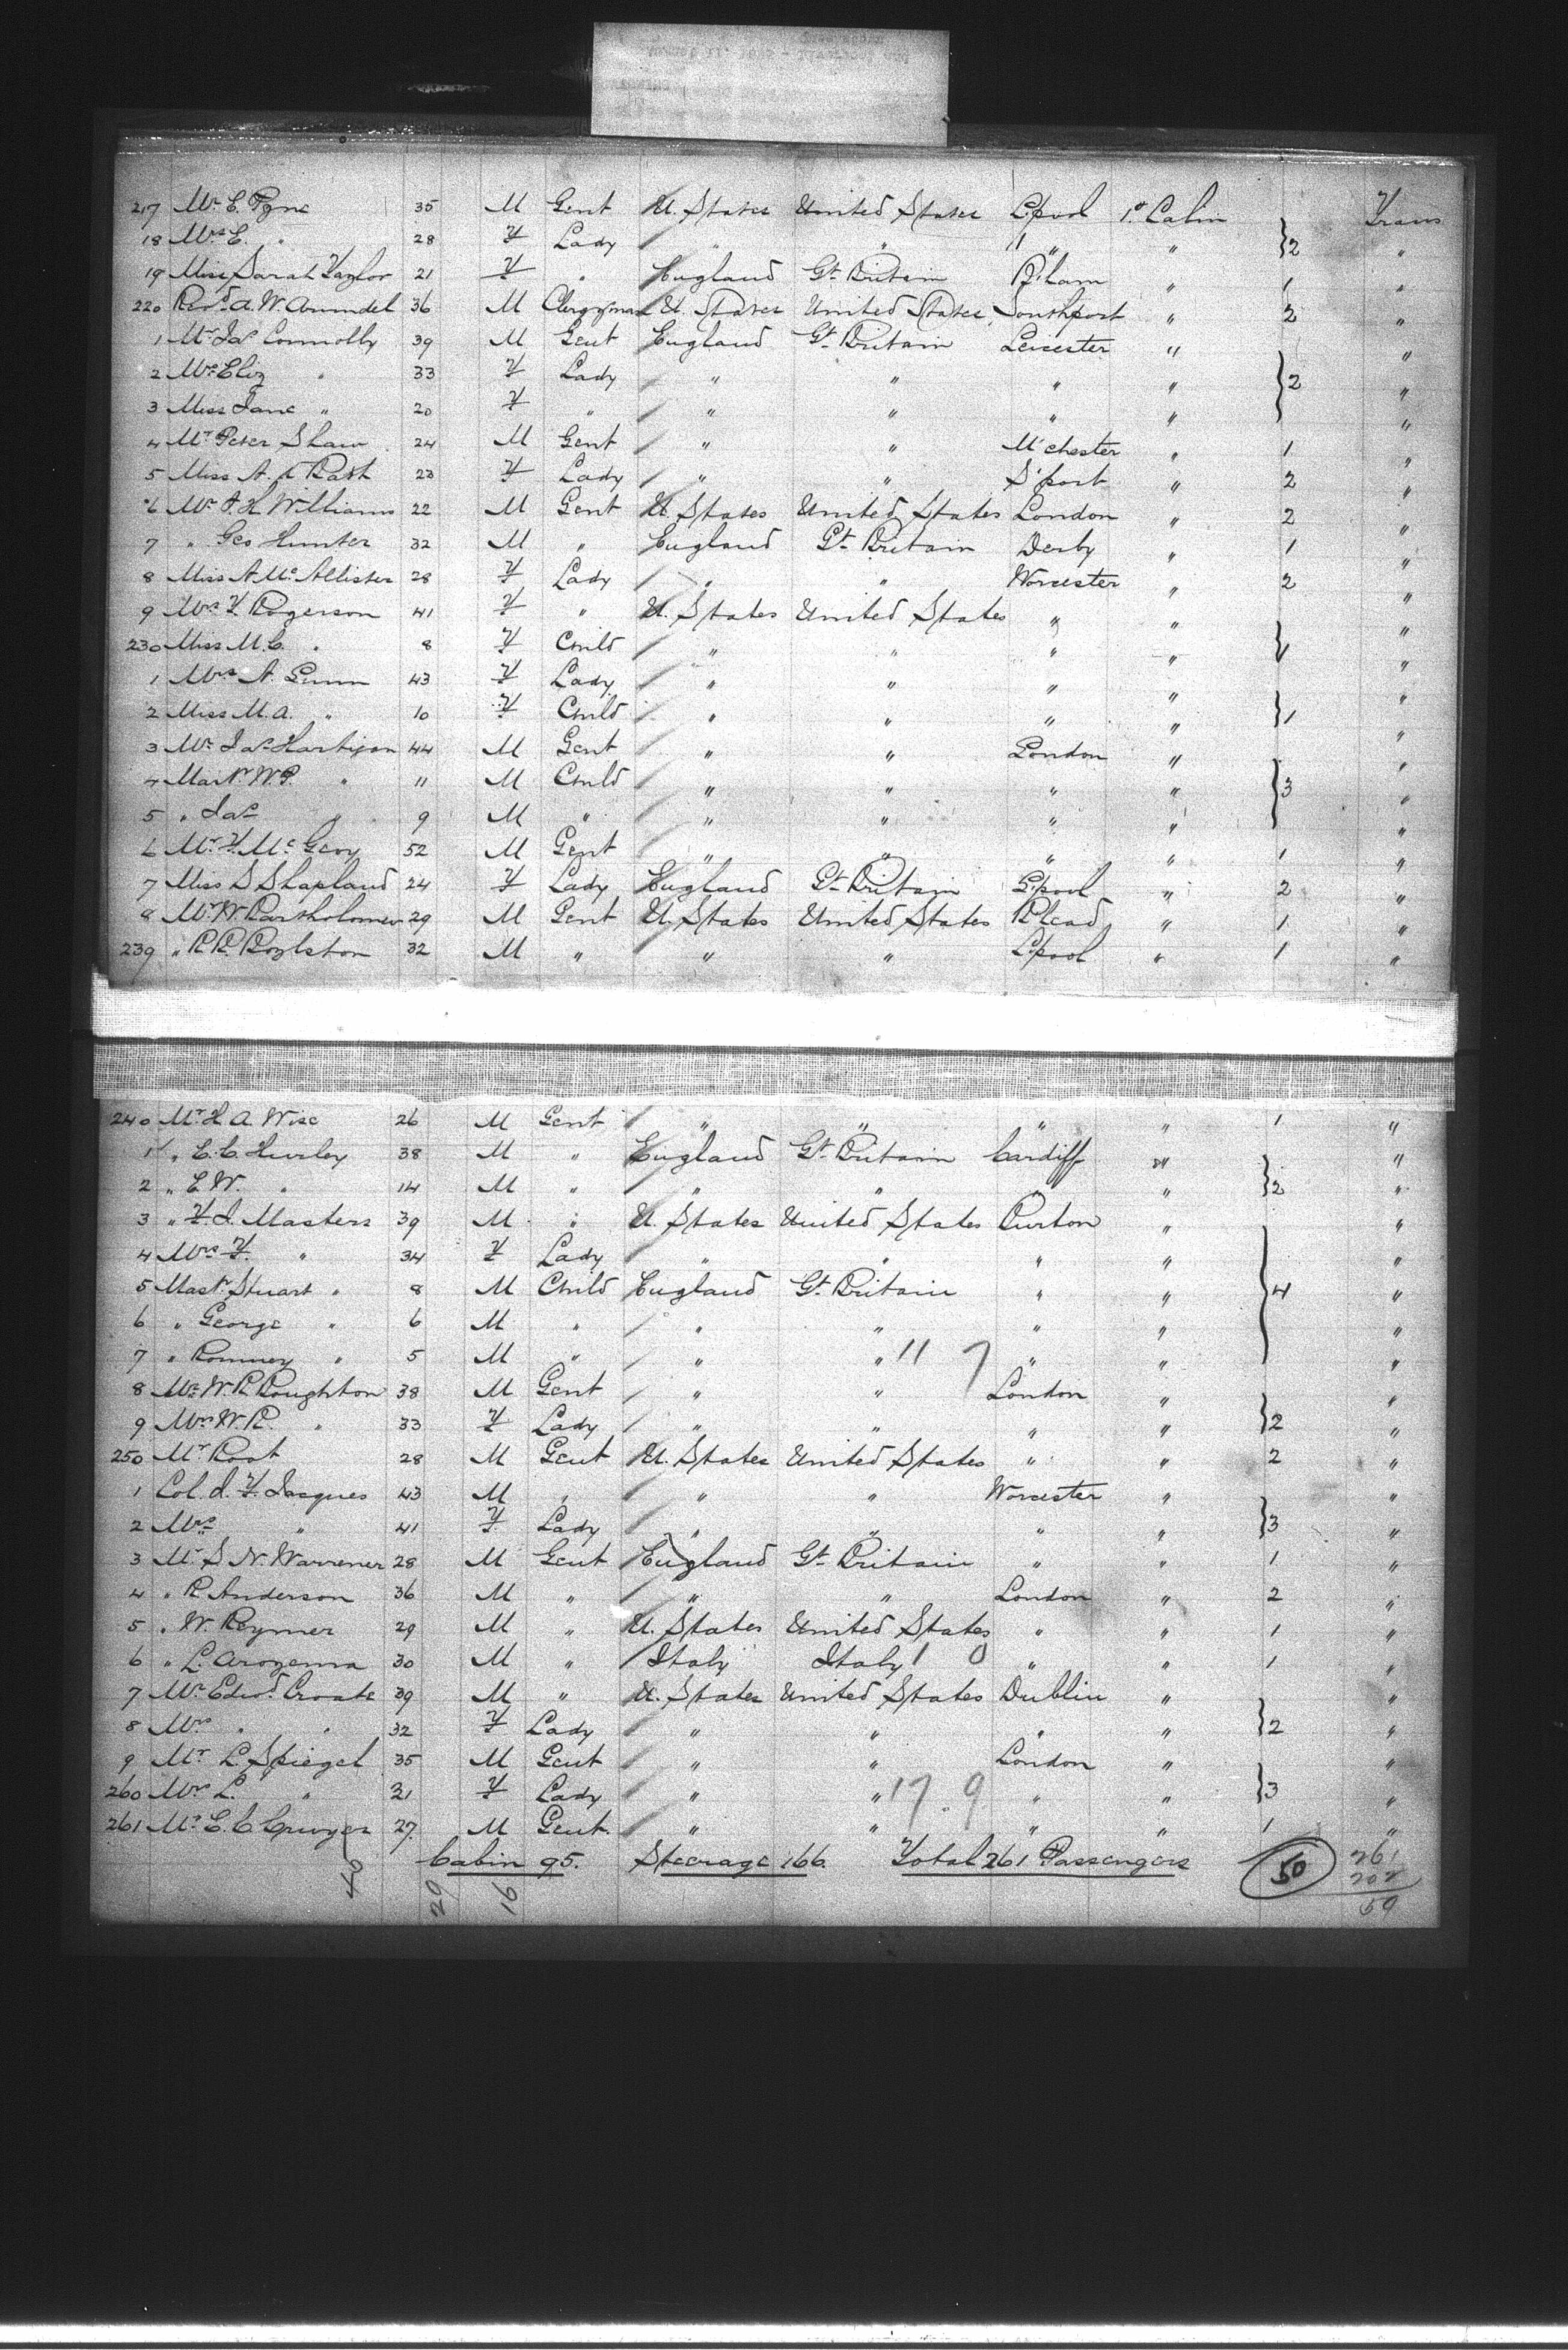 217 Mr E. Pyne 35 M Gent U. States United States L'pool 1st Cabin Trans
18 Mrs E. " 28 F Lady " " " " }2 "
19 Miss Sarah Taylor 21 F " England Gt Britain B'ham " 1 "
220 Revd A. W. Arundel 36 M Clergyman U. States United States Southport " 2 "
1 Mr Jas Connolly 39 M Gent England Gt Britain Leicester " "
2 Mrs Eliz " 33 F Lady " " " " }2 "
3 Miss Jane " 20 F " " " " " "
4 Mr Peter Shaw 24 M Gent " " M'chester " 1 "
5 Miss A. 23 F Lady " " S'port " 2 "
6 Mr F. H. Williams 22 M Gent U. States United States London " 2 "
7 " Geo Hunter 32 M " England Gt Britain Derby " 1 "
8 Miss A. McAllister 28 F Lady " " Worcester " 2 "
9 Mrs F. Rogerson 41 F " U. States United States " " "
230 Miss M. C. " 8 F Child " " " " }1 "
1 Mrs A. Gunn 43 F Lady " " " " "
2 Miss M. A. " 10 F Child " " " " }1 "
3 Mr Jas Hartigan 44 M Gent " " London " "
4 Mastr W. P. " 11 M Child " " " " }3 "
5 " Jas " 9 M " " " " " "
6 Mr F. McGevy 52 M Gent " " " " 1 "
7 Miss S Shapland 24 F Lady England Gt Britain L'pool " 2 "
8 Mr W. Bartholomew 29 M Gent U. States United States B'head " 1 "
239 " R. R. Boylston 32 M " " " L'pool " 1 "
240 Mr H A Wise 26 M Gent " " " " 1 "
1 " E. C. Hurley 38 M " England Gt Britain Cardiff " "
2 " E W. " 14 M " " " " " }2 "
3 " F. J. Masters 39 M " U. States United States Purton " "
4 Mrs F. " 34 F Lady " " " " "
5 Mastr Stuart " 8 M Child England Gt Britain " " }4 "
6 " George " 6 M " " " " " "
7 " Romney " 5 M " " " 11 7 " " "
8 Mr W. R. Roughton 38 M Gent " " London " "
9 Mrs W. R. " 33 F Lady " " " " }2 "
250 Mr Rost 28 M Gent U. States United States " " 2 "
1 Col. J. F. Jacques 43 M " " " Worcester " "
2 Mrs " 41 F Lady " " " " }3 "
3 Mr S. N. Warrener 28 M Gent England Gt Britain " " 1 "
4 " R Anderson 36 M " " " London " 2 "
5 " W. Reymer 29 M " U. States United States " " 1 "
6 " L. 30 M " Italy Italy 1 0 " " 1 "
7 Mr Edwd Croate 39 M " U. States United States Dublin " "
8 Mrs " " 32 F Lady " " " " }2 "
9 Mr L. Spiegel 35 M Gent " " London " "
260 Mrs L. " 31 F Lady " " 17 . 9 " " }3 "
261 Mr E. C. 27 M Gent. " " " " 1 "
Cabin 95. Steerage 166. Total 261 Passengers 50 261
29 16 202
59